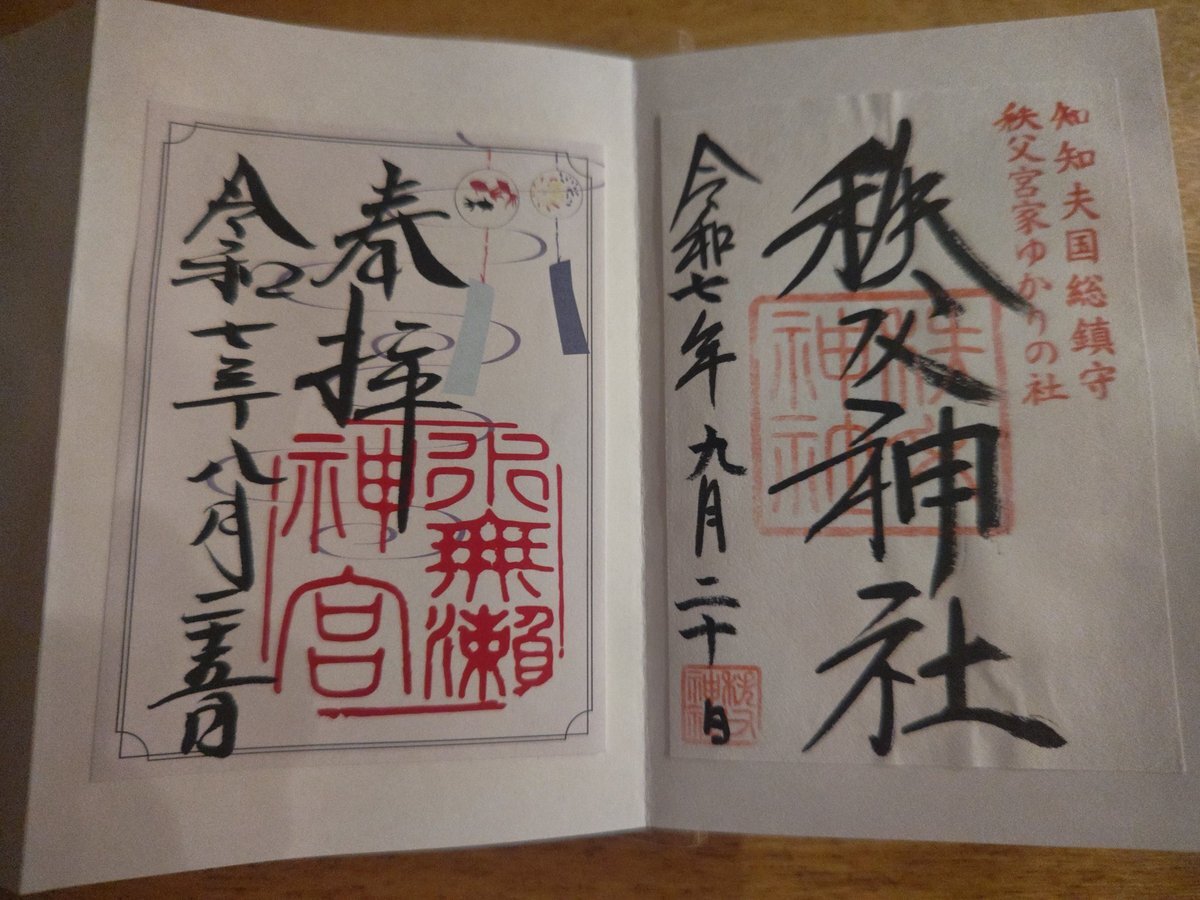 知知夫国総鎮守
秩父宮家ゆかりの社
秩父神社
秩父
神社
令和七年九月二十日
秩父
神社
奉拝
水無瀬
神宮
令和七年八月二十五日